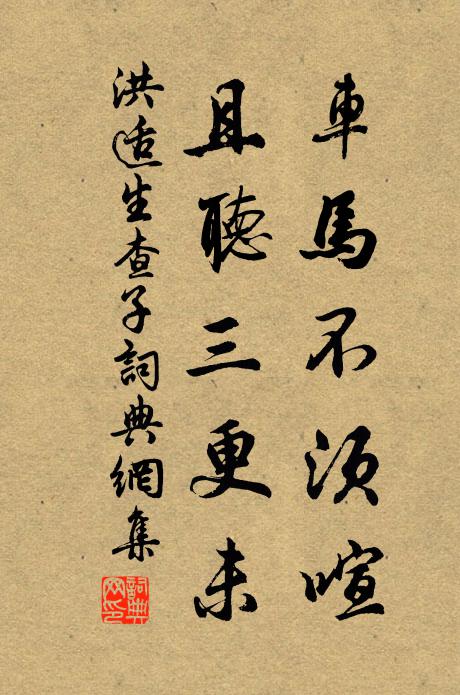 車馬不須喧
且聽三更未
洪适生查子詞典網集
詞典網印